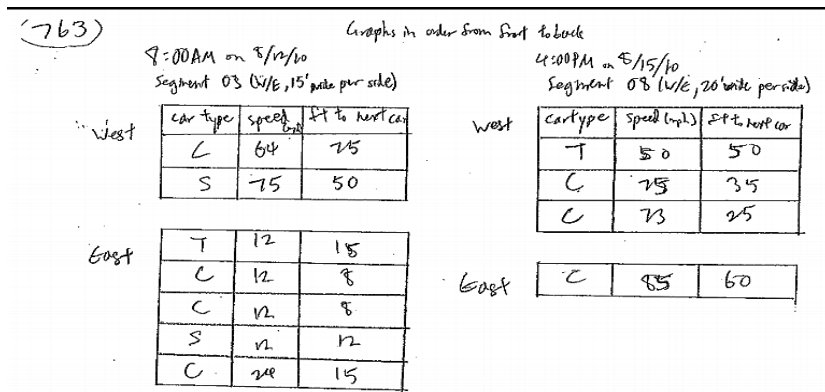 (763)
Graphs in order from front to back
8:00AM on 8/12/10
Segment 03 (W/E, 15' wide per side)
West
car type speed (mph) ft to next car
C 64 75
S 75 50
East
T 12 15
C 12 8
C 12 8
S 12 12
C 15
4:00PM on 8/15/10
Segment 08 (W/E, 20' wide per side)
West
car type speed (mph) ft to next car
T 50 50
C 75 35
C 73 25
East
C 85 60